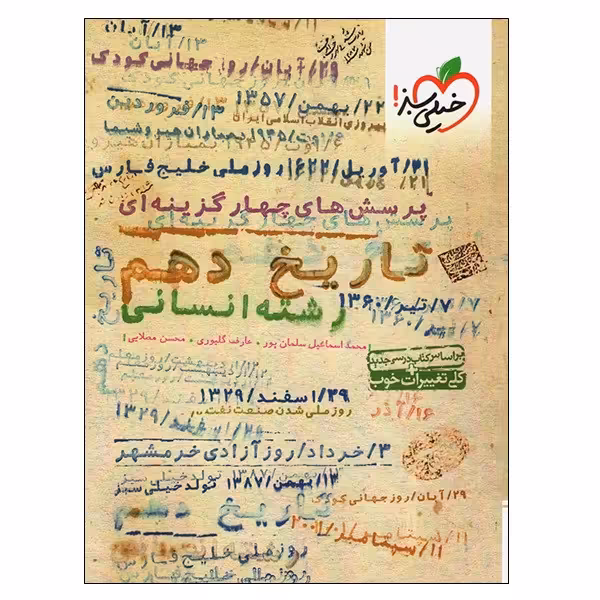 ۱۳/آبان
۲۹/آبان/روز جهانی کودک
۲۲/بهمن/۱۳۵۷
پیروزی انقلاب اسلامی ایران
۱۳/فروردین
۶/اوت/۱۹۴۵ بمباران هیروشیما
خیلی سبز!
۲۱/آوریل/۱۶۲۲ روز ملی خلیج فارس
پرسش های چهار گزینه ای
تاریخ دهم
رشته انسانی
۷/تیر/۱۳۶۰
محمد اسماعیل سلمان پور • عارف گلپوری • محسن مصلایی
براساس کتاب درسی جدید
کلی تغییرات خوب
۱۶/آذر
۲۹/اسفند/۱۳۲۹
روز ملی شدن صنعت نفت
۳/خرداد/روز آزادی خرمشهر
۱۳/بهمن/۱۳۸۷ تولد خیلی سبز
۲۹/آبان/روز جهانی کودک
تاریخ دهم
۱۱/سپتامبر/۲۰۰۱
روز ملی خلیج فارس